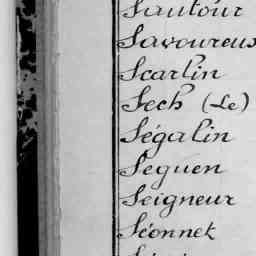 Sautour
Savoureux
Scarlin
Sech (Le)
Ségalin
Seguen
Seigneur
Séonnet